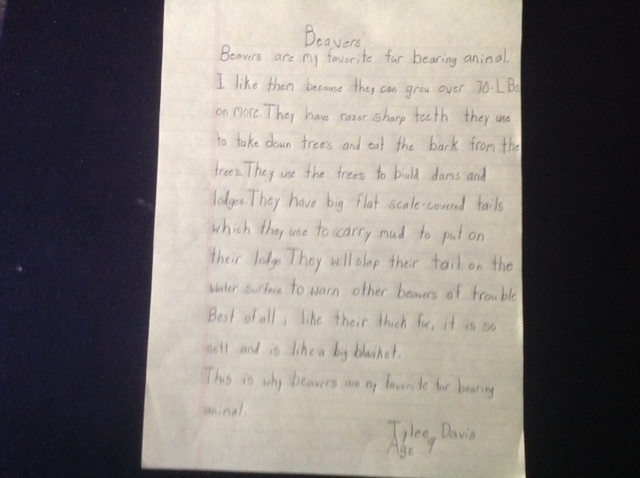 Beavers
Beavers are my favorite fur bearing animal.
I like them because they can grow over 70 LBs
on more. They have razor sharp teeth they use
to take down trees and eat the bark from the
trees. They use the trees to biuld dams and
lodges. They have big flat scale-covered tails
which they use to carry mud to put on
their lodge They will slap their tail on the
water surface to warn other beavers of trouble
Best of all, i like their thick fur, it is so
soft and is like a big blanket.
This is why beavers are my favorite fur bearing
animal.
Tylee Davis
Age 9